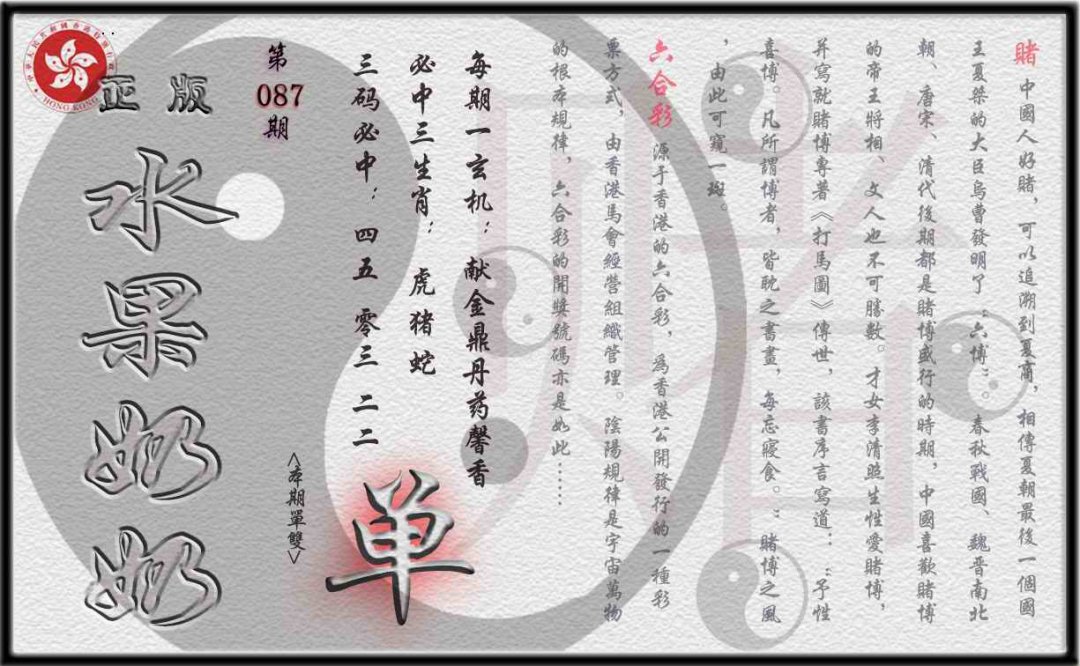 賭 中國人好賭，可以追溯到夏商，相傳夏朝最後一個國
王夏桀的大臣烏曹發明了“六博”。春秋戰國、魏晉南北
朝、唐宋、清代後期都是賭博盛行的時期，中國喜歡賭博
的帝王將相、文人也不可勝數。才女李清照生性愛賭博，
并寫就賭博專著《打馬圖》傳世，該書序言寫道：“予性
喜博。凡所謂博者，皆耽之書晝，每忘寢食。”賭博之風
，由此可窺一斑。
六合彩 源于香港的六合彩，為香港公開發行的一種彩
票方式，由香港馬會經營組織管理。陰陽規律是宇宙萬物
的根本規律，六合彩的開獎號碼亦是如此……
每期一玄机：献金鼎丹药馨香
必中三生肖：虎猪蛇
三码必中：四五 零三 二二
单
<本期單雙>
第
087
期
正版
水果奶奶
HONG KONG